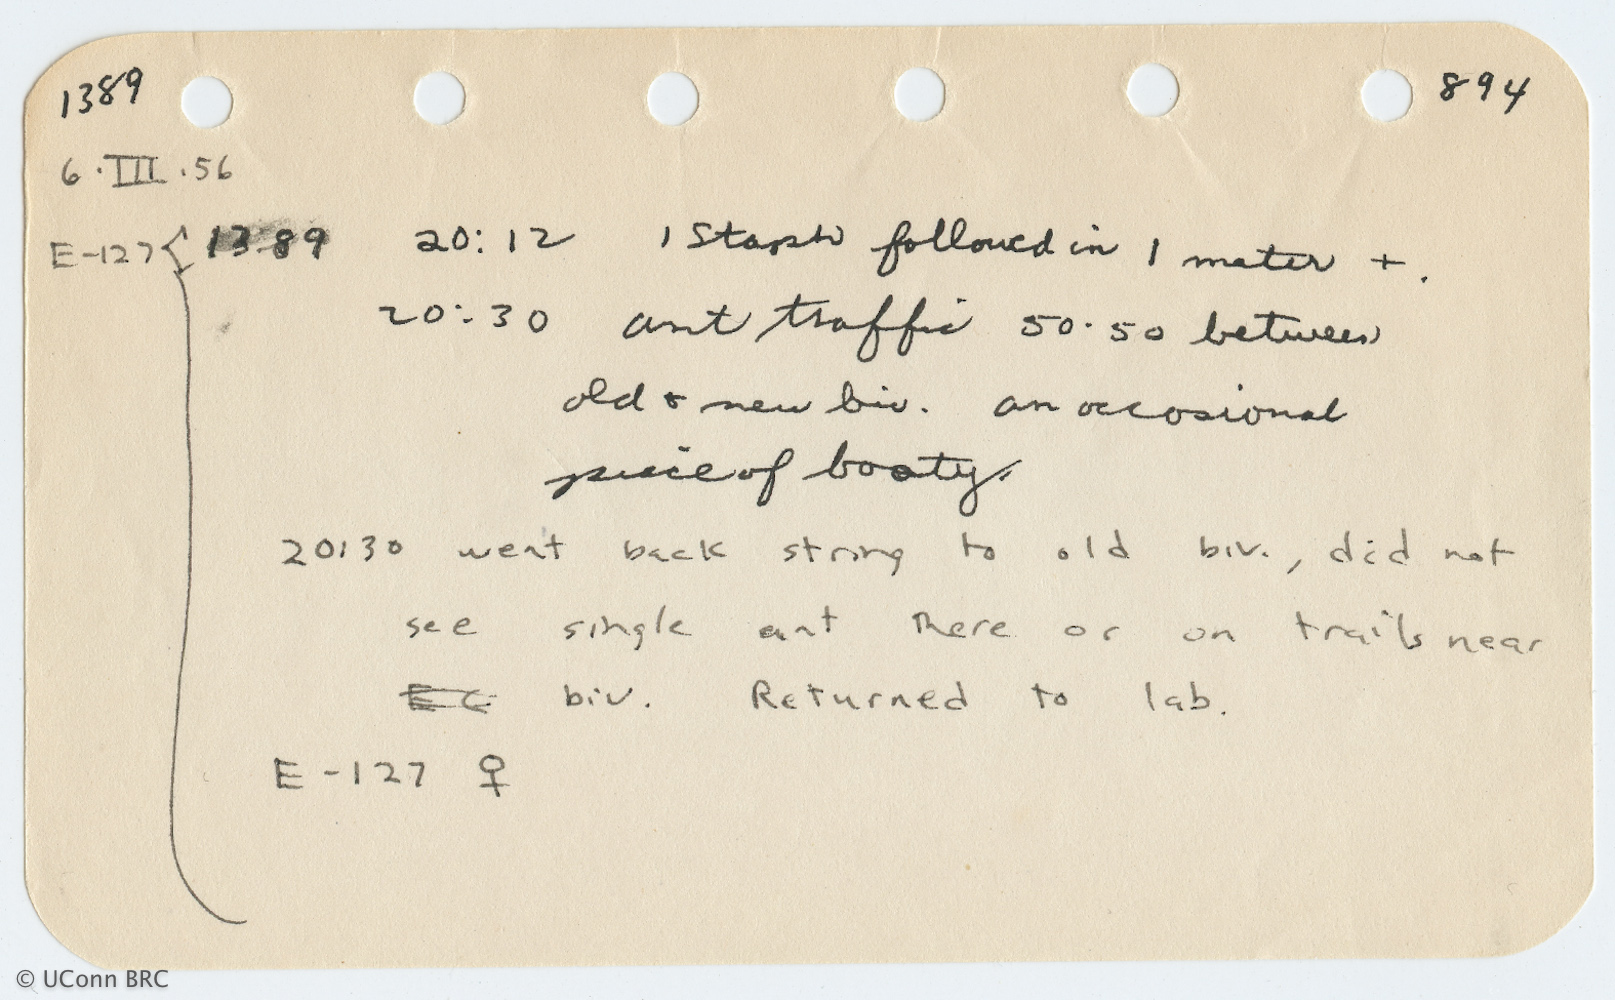 1389 894
6·III·56
E-127 { 1389 20:12 1 Staph followed in 1 meter +.
20:30 ant traffic 50·50 between
old & new biv. an occasional
piece of booty.
20:30 went back strong to old biv., did not
see single ant there or on trails near
biv. Returned to lab.
E-127 ♀
© UConn BRC